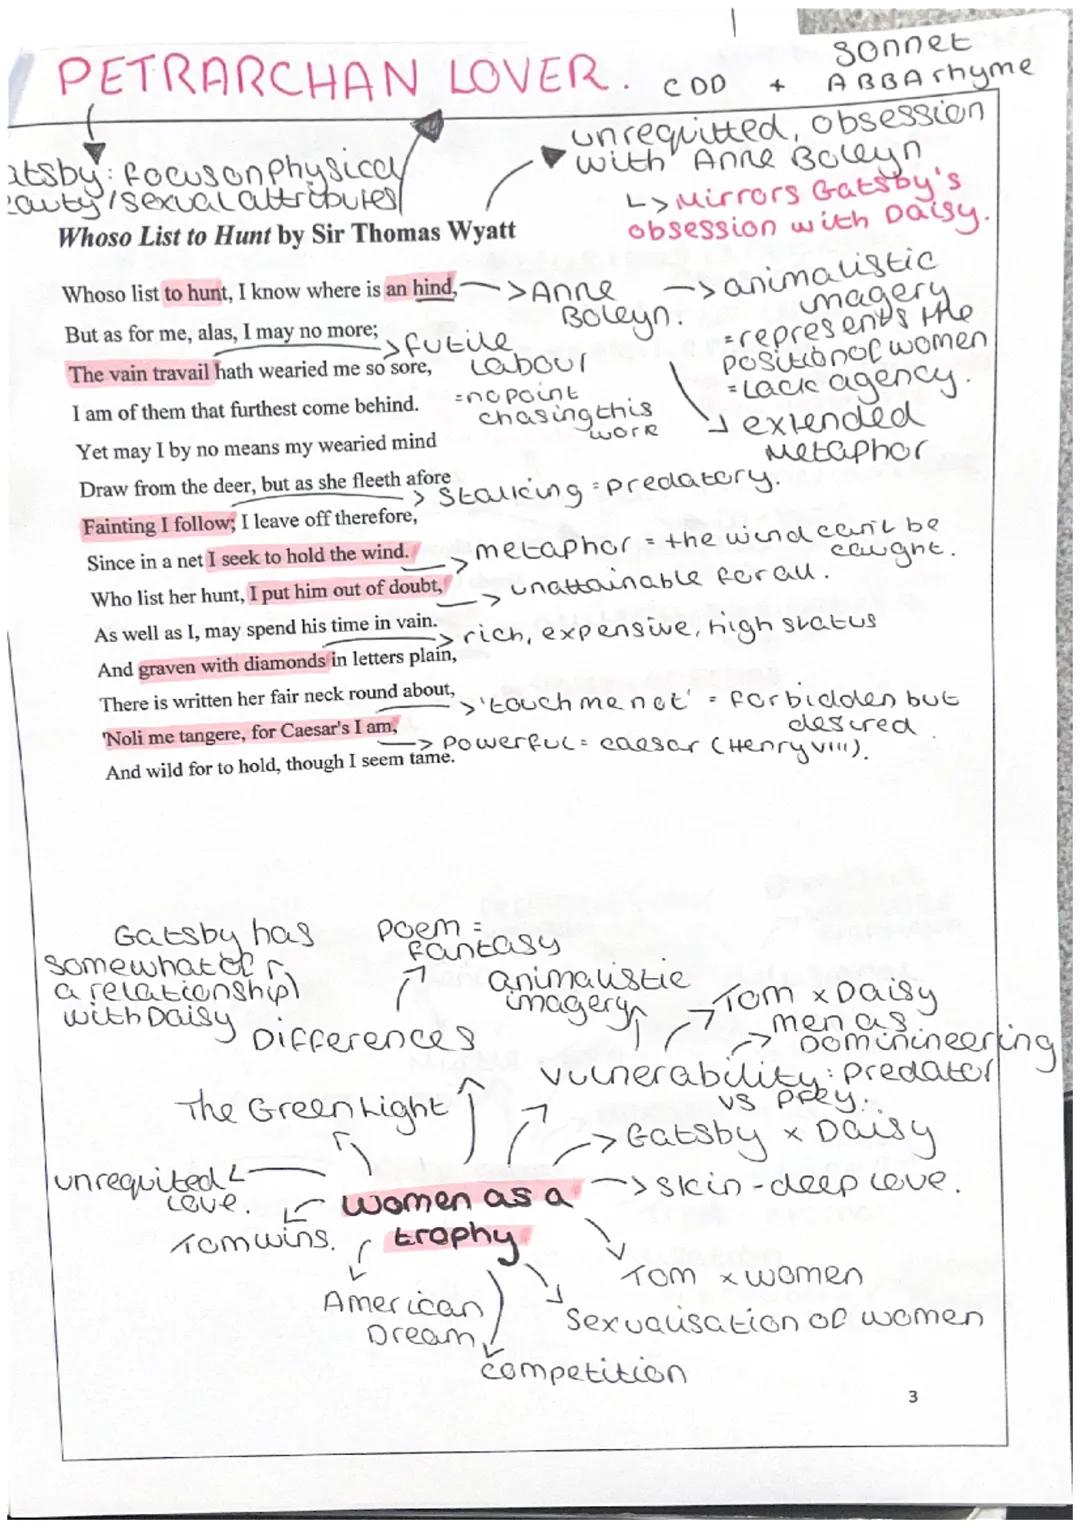 PETRARCHAN LOVER. CDD + sonnet
ABBA rhyme
unrequitted, obsession
with Anne Boleyn
↳ Mirrors Gatsby's
obsession with Daisy.
atsby: focus on physical
eauty / sexual attributes
Whoso List to Hunt by Sir Thomas Wyatt
Whoso list to hunt, I know where is an hind,
→ Anne
Boleyn.
→ animalistic
imagery
= represents the
position of women
= Lack agency.
↓ extended
metaphor
But as for me, alas, I may no more;
The vain travail hath wearied me so sore,
> futile
Labour
= no point
chasing this
work
I am of them that furthest come behind.
Yet may I by no means my wearied mind
Draw from the deer, but as she fleeth afore
> Stalking = predatory.
Fainting I follow; I leave off therefore,
Since in a net I seek to hold the wind.
→ metaphor = the wind can't be
caught.
Who list her hunt, I put him out of doubt,
→ unattainable for all.
As well as I, may spend his time in vain.
And graven with diamonds in letters plain,
> rich, expensive, high status
There is written her fair neck round about,
'Noli me tangere, for Caesar's I am,
> 'touch me not' = forbidden but
desired.
→ Powerful = caesar (Henry VIII).
And wild for to hold, though I seem tame.
Gatsby has
somewhat of
a relationship
with Daisy
Differences
poem =
fantasy
animalistic
imagery
Tom x Daisy
men as
Dominineering
vulnerability: predator
vs prey.
Gatsby x Daisy
skin-deep love.
The Green Light
unrequited
love.
Tom wins.
women as a
trophy
American
Dream
competition
Sexualisation of women
Tom x women
3